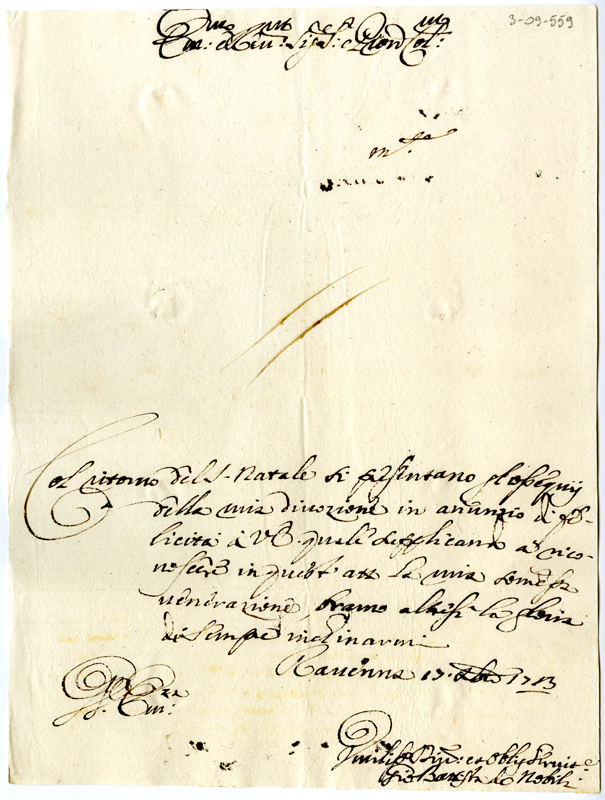 3-09-559
Em:mo e Rev:mo Sig:r Sig:r e Pron Col:mo
Col ritorno del S. Natale si presentano gl'ossequij
della mia divozione in anunzio di fe-
licità à V.E. quale supplicando a rico-
noscere in quest' atto la mia somessa
venerazione, bramo altresì la gloria
di sempre inchinarmi
Ravenna 17. Xbre 1713
Em:
Umiliss Div: et Obblig Servit:e
Gio Batista de Nobili